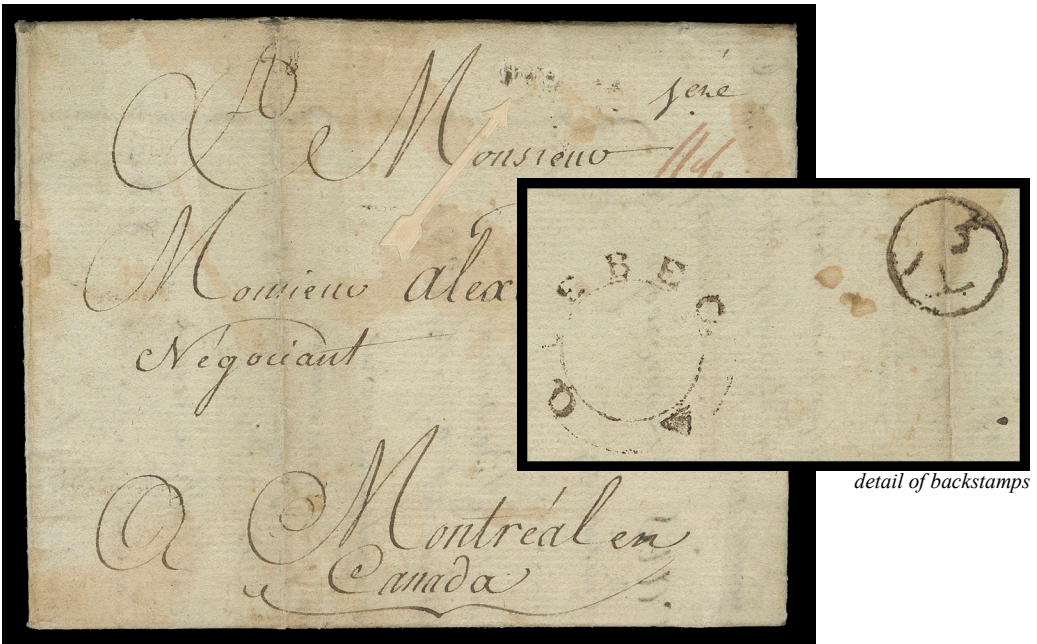 A Monsieur
Monsieur Alex
Négociant
A Montréal en
Canada
QUEBEC
3
IL
detail of backstamps